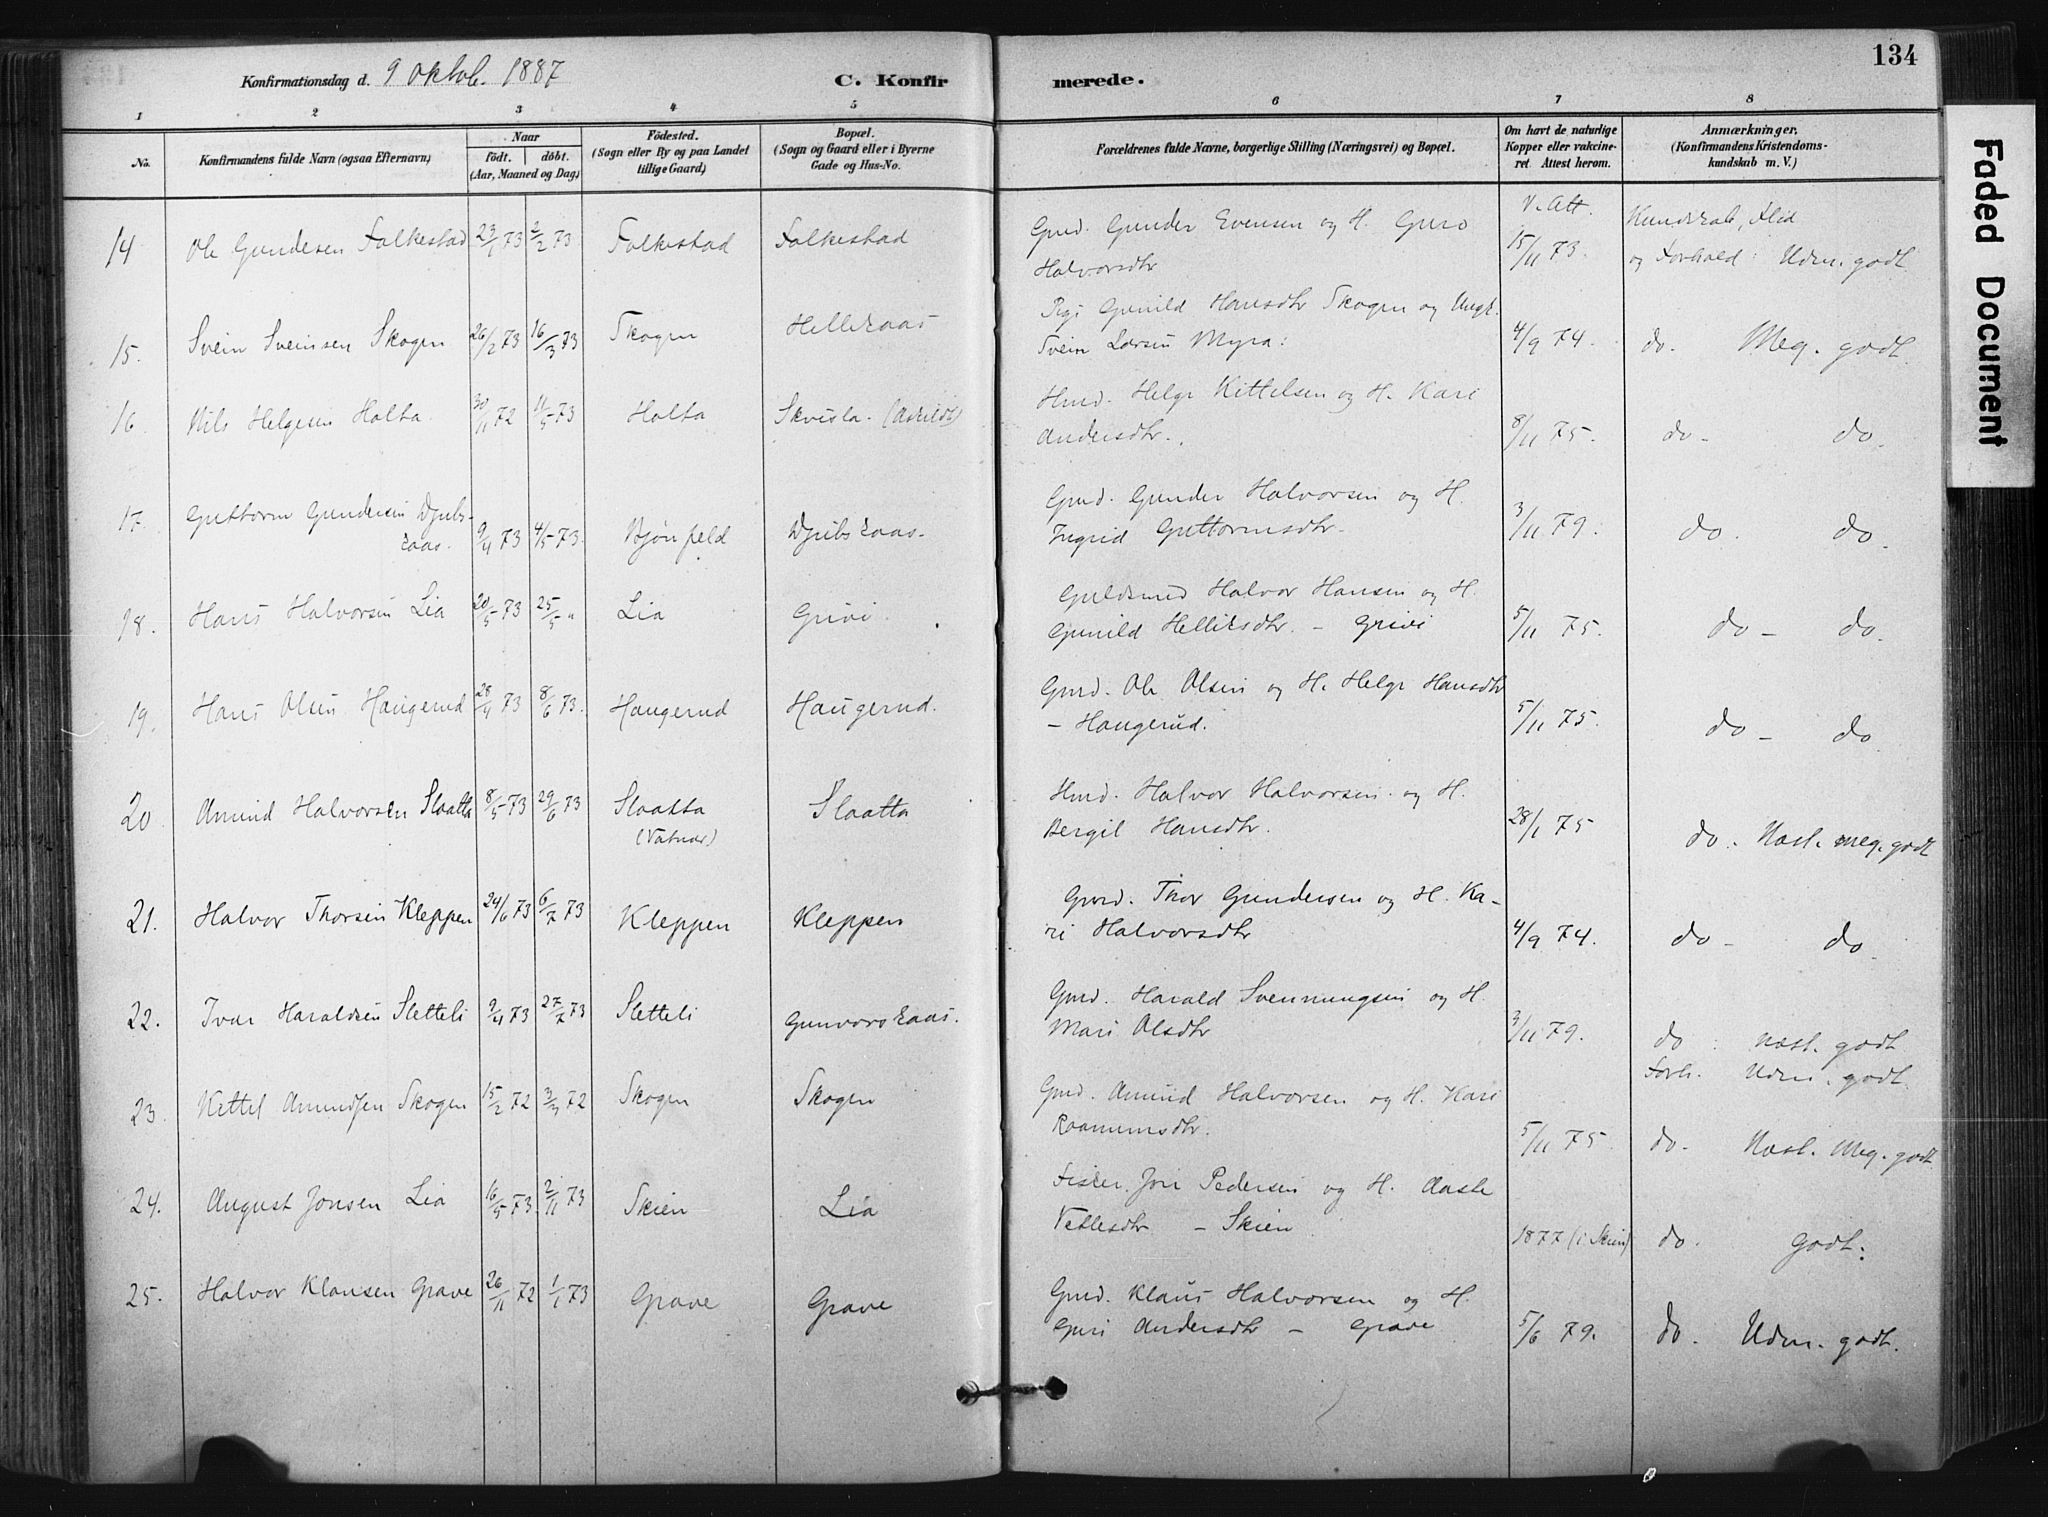 134
Konfirmationsdag d. 9 Oktob. 1887 C. Konfirmerede.
1 2 3 4 5 6 7 8
No. Konfirmandens fulde Navn (ogsaa Efternavn) Naar födt. döbt. (Aar, Maaned og Dag) Födested. (Sogn eller By og paa Landet tillige Gaard) Bopæl. (Sogn og Gaard eller i Byerne Gade og Hus-No. Forældrenes fulde Navne, borgerlige Stilling (Næringsvei) og Bopæl. Om havt de naturlige Kopper eller vakcineret Attest herom. Anmærkninger, (Konfirmandens Kristendomskundskab m. V.)
Faded Document
14 Ole Gundesen Falkestad 23/1 73 2/2 73 Folkestad Folkestad Gmd. Gunder Evensen og H. Guro
Halvorsdtr V. Att. 15/11 73. Kundskab, Flid
og Forhold: Udm. godt
15. Svein Sveinsen Skogen 26/2 73 16/3 73 Skogen Hellekaas Pige Gunild Hansdtr Skogen og Ungk.
Svein Larsen Myra: 4/9 74. do. Meg. godt.
16. Nils Helgesen Holta. 30/11 72 11/5 73 Holta Skvisla. Hmd. Helge Kittelsen og H. Kari
Andersdtr. 8/11 75. do - do.
17. Guttorm Gundersen Djubs-
kaas. 9/4 73 4/5 73. Bjönfjeld Djubskaas. Gmd. Gunder Halvorsen og H.
Ingrid Guttormsdtr. 3/11 79. do. do.
18. Hans Halvorsen Lia 20/5 73 25/5 " Lia Grivi. Guldsmed Halvor Hansen og H.
Gunild Helliksdtr. - Grivi 5/11 75. do - do.
19. Hans Olsen Haugerud 28/4 73 8/6 73. Haugerud Haugerud. Gmd. Ole Olsen og H. Helge Hansdtr
- Haugerud. 5/11 75. do - do.
20 Amund Halvorsen Slaatta 8/5 73 29/6 73 Slaatta
(Vatnar) Slaatta Hmd. Halvor Halvorsen og H.
Bergit Hansdtr. 28/1 75 do. Næst. meg. godt
21. Halvor Thorsen Kleppen 24/6 73 6/7 73 Kleppen Kleppen Gmd. Thor Gundersen og H. Ka-
ri Halvorsdtr 4/9 74. do - do.
22. Ivar Haraldsen Sletteli 9/4 73 27/7 73 Sletteli Gunvorskaas. Gmd. Harald Svennungsen og H.
Mari Olsdtr 3/11 79. do : Næst. godt
Forh. Udm. godt.
23. Kettel Amundsen Skogen 15/2 72 3/3 72 Skogen Skogen Gmd. Amund Halvorsen og H. Kari
Raamunsdtr. 5/11 75. do. Næst. Meg. godt
24. August Jonsen Lia 16/5 73. 2/11 73 Skien Lia Fisker. Jon Pedersen og H. Aaste
Vetlesdtr - Skien 1877 (i Skien) do. Godt.
25. Halvor Klausen Grave 26/11 72 1/1 73 Grave Grave Gmd. Klaus Halvorsen og H.
Guri Andersdtr - Grave 5/6 79. do. Udm. godt.